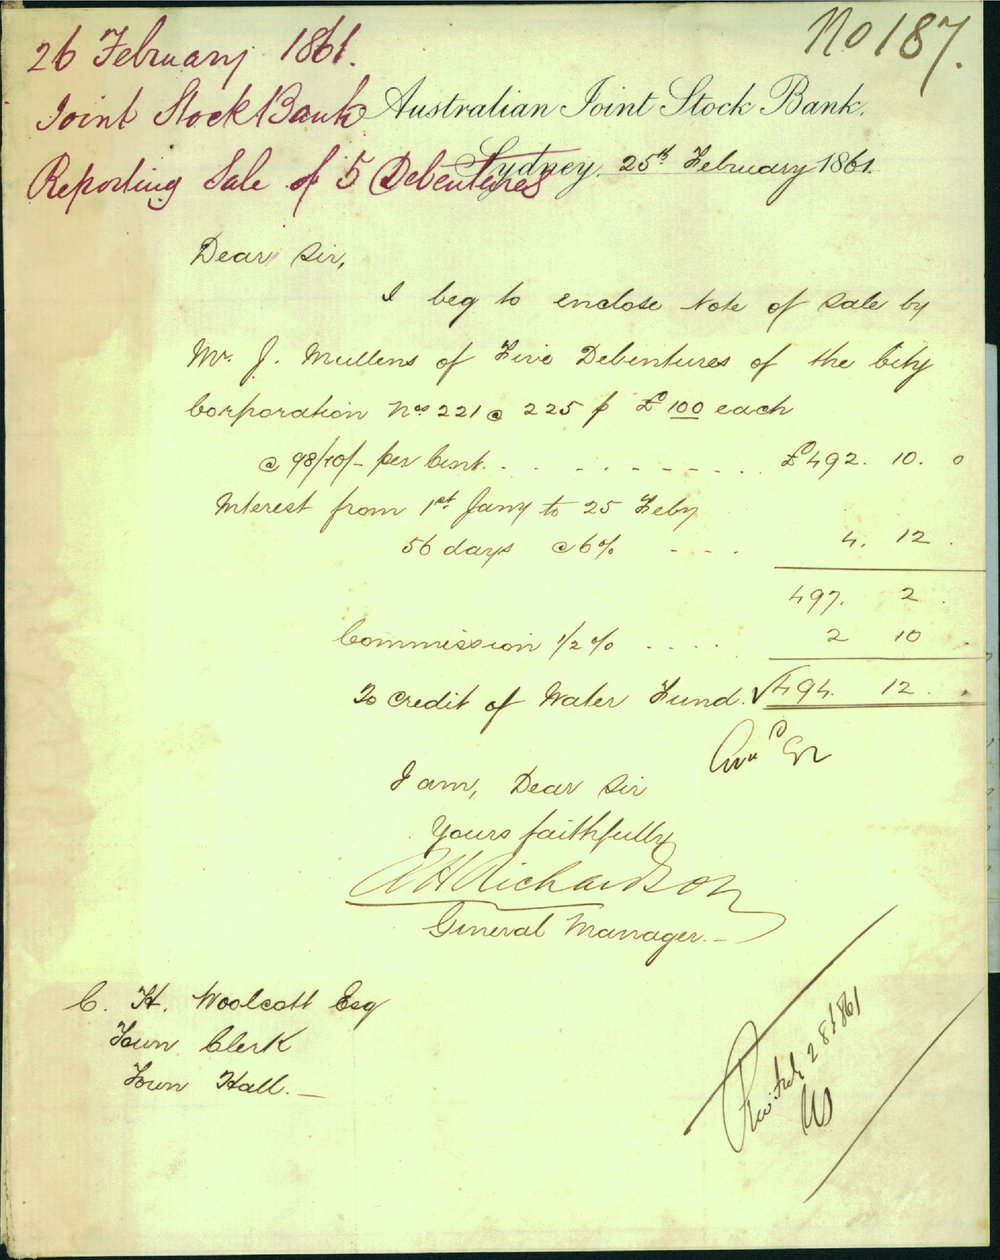 No 187.
26 February 1861.
Joint Stock Bank
Reporting Sale of 5 Debentures
Australian Joint Stock Bank.
Sydney, 25th February 1861.
Dear Sir,
I beg to enclose Note of Sale by
Mr. J. Mullens of Five Debentures of the City
Corporation Nos 221 @ 225 p £100 each
@ 98/10/- per Cent. . . - - - - - - - . . . £492. 10. 0
Interest from 1st Jany to 25 Feby
56 days @ 6% - - - . 4. 12 .
497. 2 .
Commission 1/2 % . . . . 2 10 .
To Credit of Water Fund. √494. 12 .
I am, Dear Sir
Yours faithfully
A H Richardson
General Manager.-
C. H. Woolcott Esq
Town Clerk
Town Hall.-